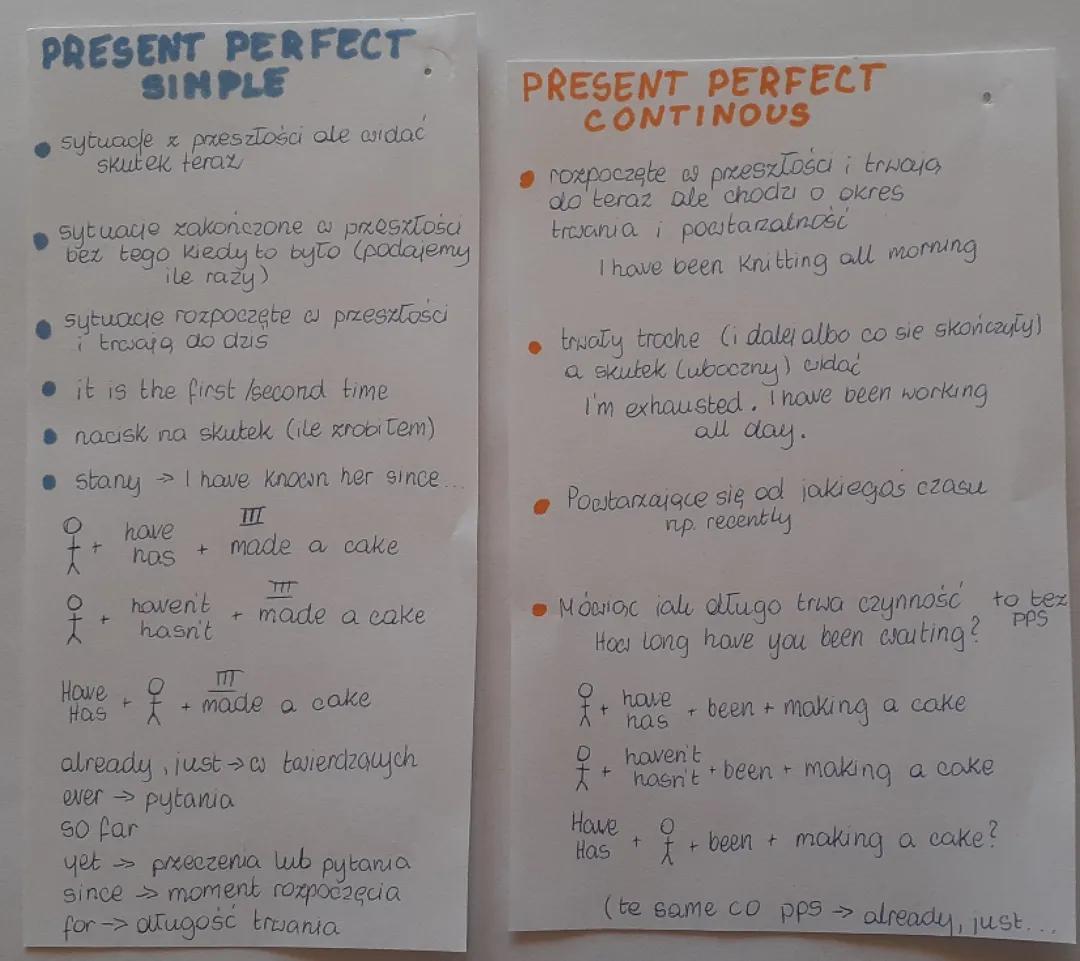 PRESENT PERFECT
SIMPLE
• sytuacje z przeszłości ale widać
skutek teraz
• sytuacje zakończone w przeszłości
bez tego kiedy to było (podajemy
ile razy)
• sytuacje rozpoczęte w przeszłości
i trwają do dziś
• it is the first /second time
• nacisk na skutek (ile zrobiłem)
• stany → I have known her since...
III
+ have
has + made a cake
III
+ haven't
hasn't + made a cake
III
Have
Has + + made a cake
already, just → w twierdzących
ever → pytania
so far
yet → przeczenia lub pytania
since → moment rozpoczęcia
for → długość trwania
PRESENT PERFECT
CONTINOUS
• rozpoczęte w przeszłości i trwają
do teraz ale chodzi o okres
trwania i powtarzalność
I have been knitting all morning
• trwały troche (i dalej albo co się skończyły)
a skutek (uboczny) widać
I'm exhausted. I have been working
all day.
• Powtarzające się od jakiegoś czasu
np. recently
• Mówiąc jak długo trwa czynność to też
PPS
How long have you been waiting?
+ have
has + been + making a cake
+ haven't
hasn't + been + making a cake
Have
Has + + been + making a cake?
(te same co pps → already, just...